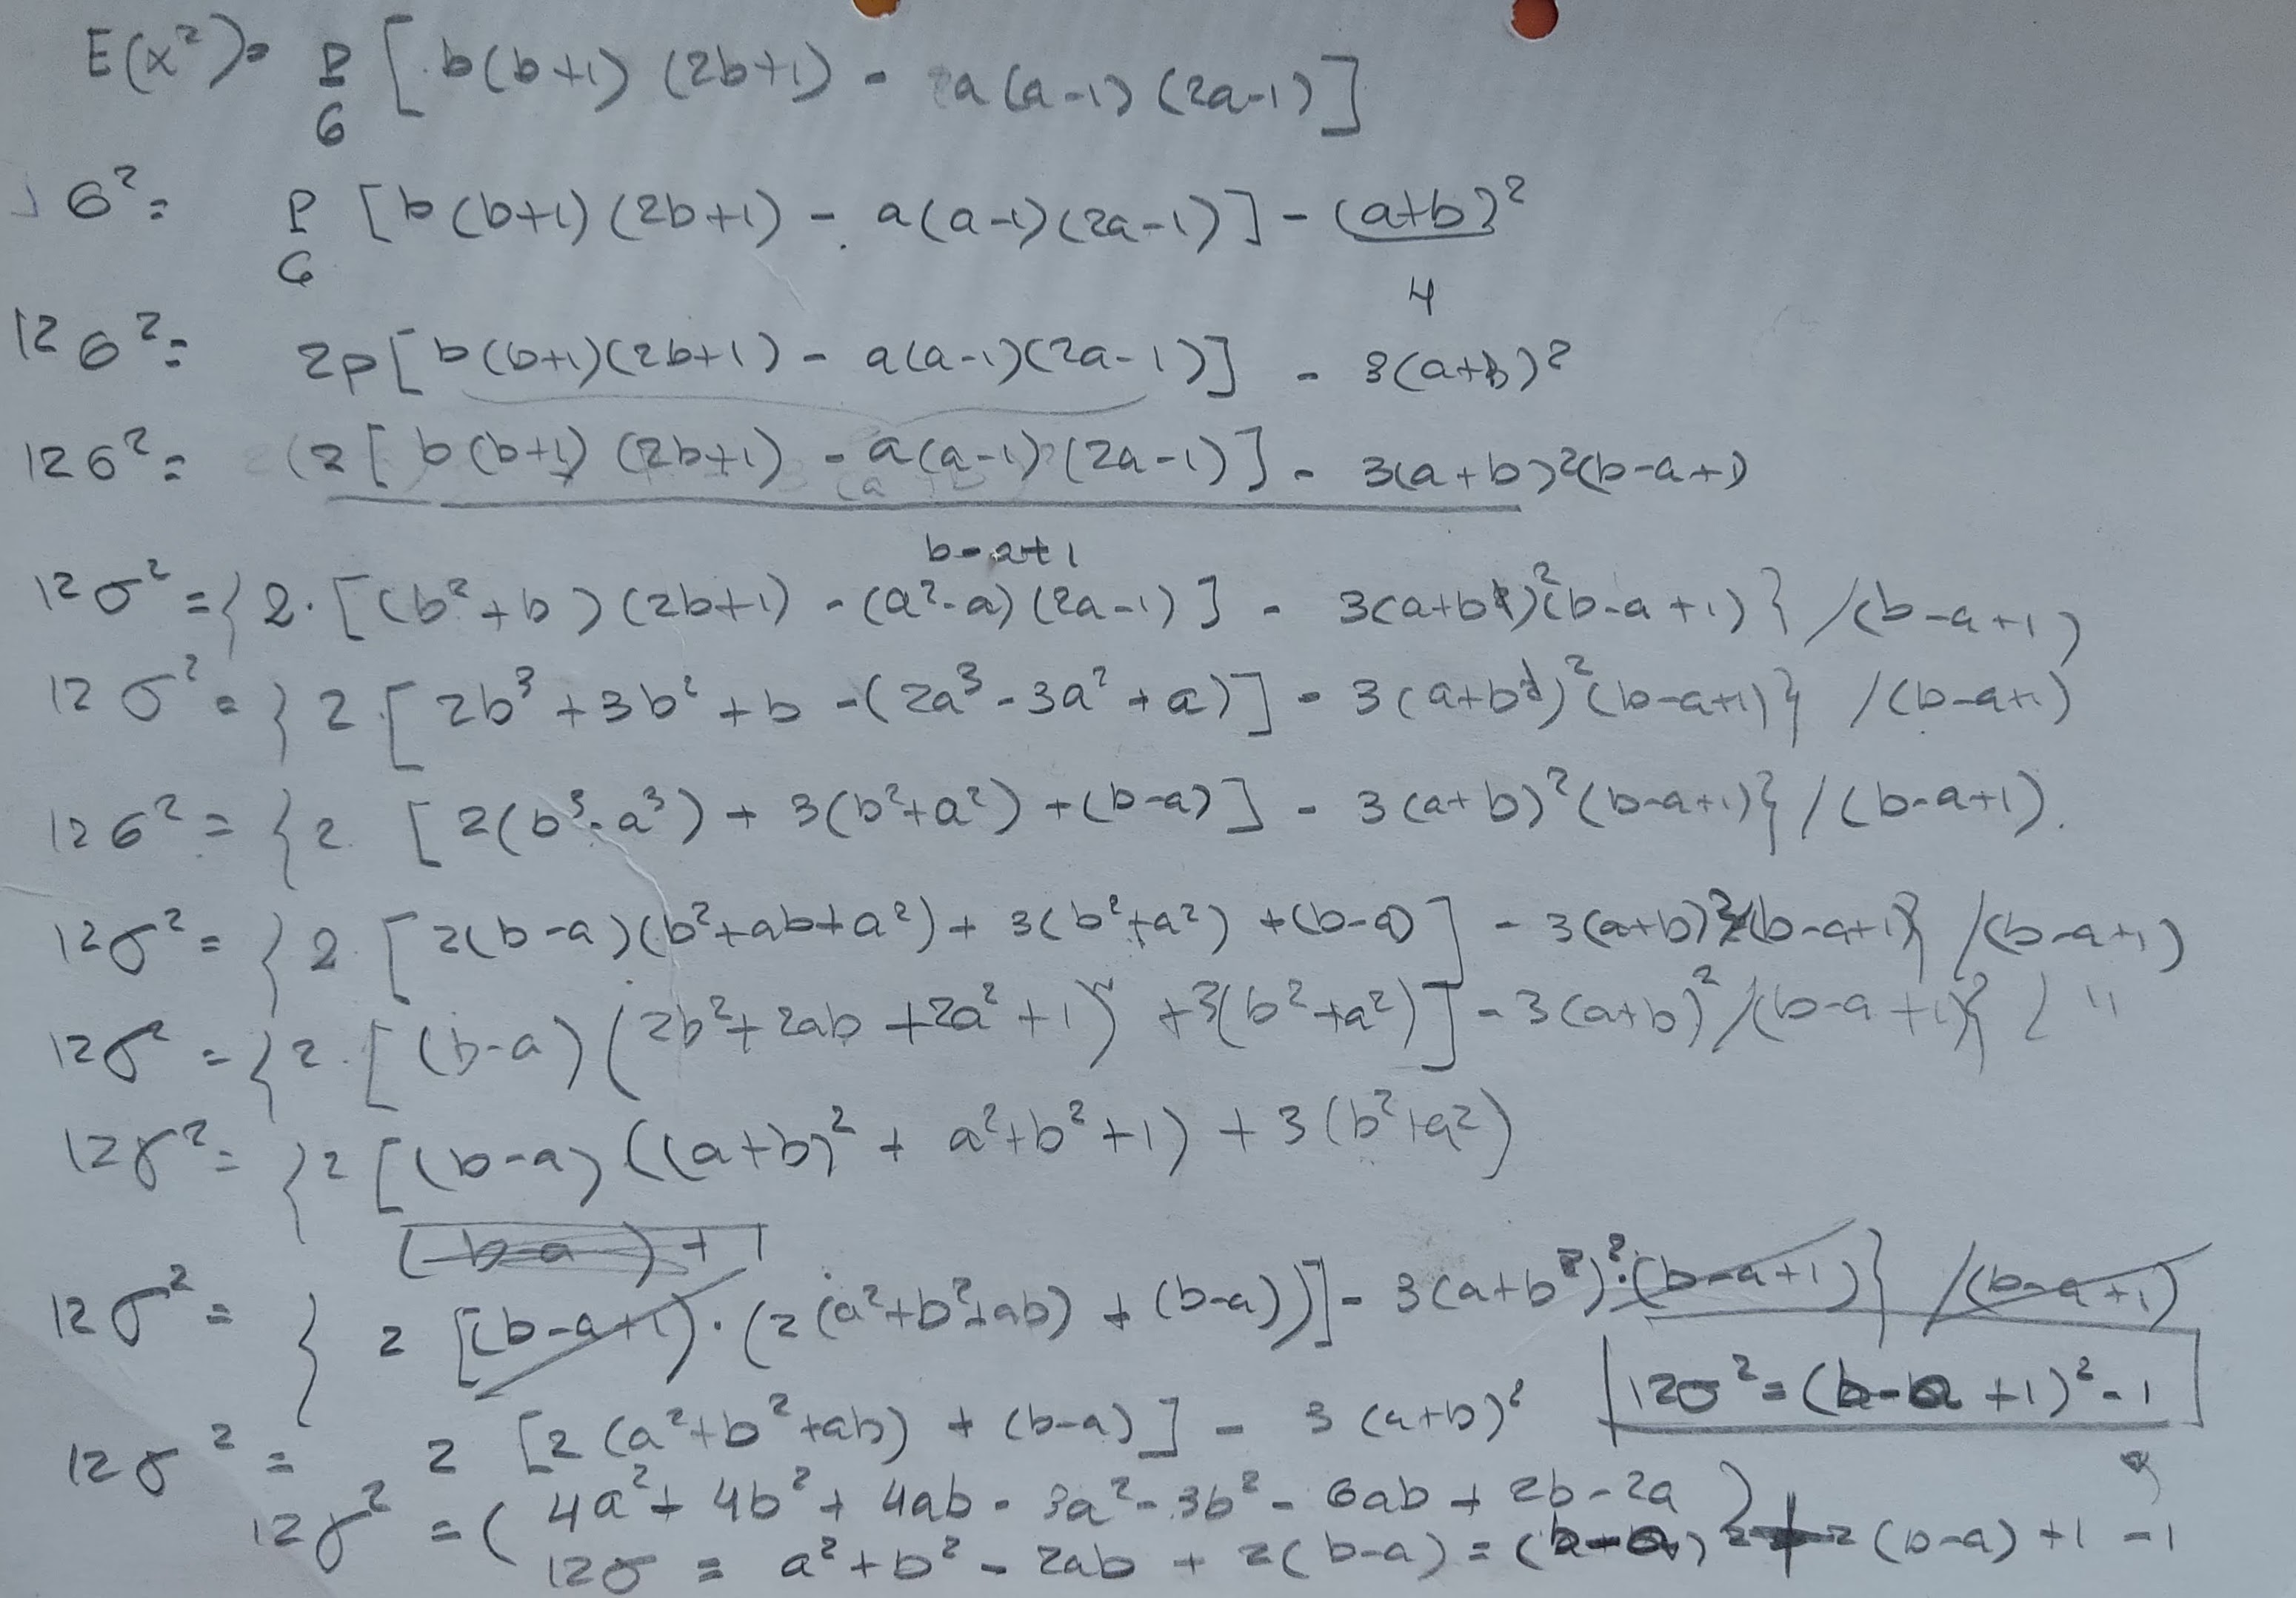 E(x²) = P/6 [b(b+1) (2b+1) - a(a-1) (2a-1)]
σ² = P/6 [b(b+1)(2b+1) - a(a-1)(2a-1)] - (a+b)²/4
12σ² = 2p[b(b+1)(2b+1) - a(a-1)(2a-1)] - 3(a+b)²
12σ² = (2[b(b+1)(2b+1) - a(a-1)(2a-1)] - 3(a+b)²(b-a+1)
b-a+1
12σ² = {2.[(b²+b)(2b+1) - (a²-a)(2a-1)] - 3(a+b)²(b-a+1)} /(b-a+1)
12σ² = {2[2b³+3b²+b-(2a³-3a²+a)] - 3(a+b)²(b-a+1)} /(b-a+1)
12σ² = {2[2(b³-a³) + 3(b²+a²) + (b-a)] - 3(a+b)²(b-a+1)} /(b-a+1).
12σ² = {2.[2(b-a)(b²+ab+a²) + 3(b²+a²) + (b-a)] - 3(a+b)²(b-a+1)} /(b-a+1)
12σ² = {2.[(b-a)(2b²+2ab+2a²+1) + 3(b²+a²)] - 3(a+b)²/(b-a+1)} / "
12σ² = {2[(b-a)((a+b)² + a²+b²+1) + 3(b²+a²)
(b-a)+1
12σ² = {2[(b-a+1).(2(a²+b²+ab) + (b-a))] - 3(a+b)².(b-a+1)} /(b-a+1)
12σ² = (b-a+1)²-1
12σ² = 2[2(a²+b²+ab) + (b-a)] - 3(a+b)²
12σ² = (4a²+4b²+4ab-3a²-3b²-6ab+2b-2a)
12σ = a²+b²-2ab + 2(b-a) = (b-a)²+2(b-a)+1-1